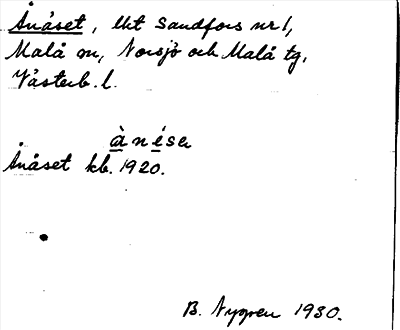 Ånåset, lht Sandfors nr 1,
Malå sn, Norsjö och Malå tg,
Västerb. l.
ànésa
Ånåset kb. 1920.
B. Nygren 1930.